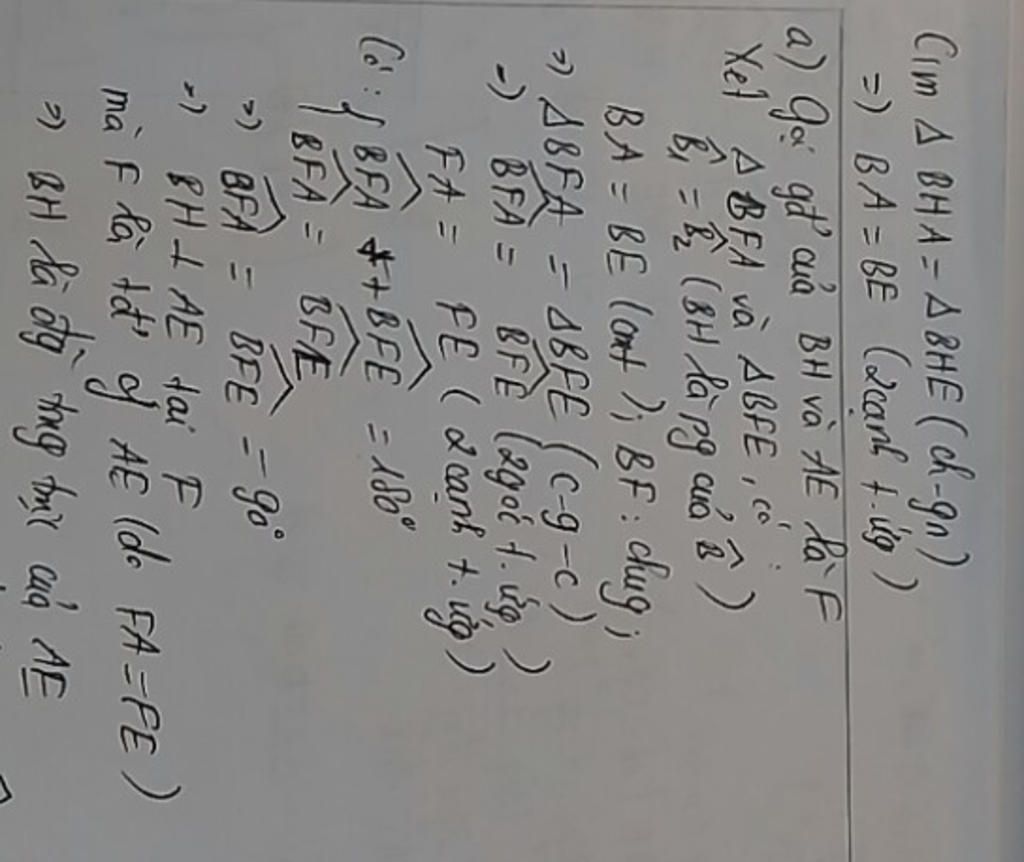 C/m Δ BHA = Δ BHE (ch-gn)
=) BA = BE (2 cạnh t.ứg)
a) Gọi gđ' của BH và AE là F
Xét Δ BFA và Δ BFE, có:
B̂₁ = B̂₂ (BH là pg của B̂)
BA = BE (cmt); BF: chug;
=) Δ BFA = Δ BFE (c-g-c)
=) BFA^ = BFE^ (2 góc t.ứg)
FA = FE (2 cạnh t.ứg)
Có: { BFA^ + BFE^ = 180°
BFA^ = BFE^
=) BFA^ = BFE^ = 90°
=) BH ⊥ AE tại F
mà F là tđ' of AE (do FA = FE)
=) BH là đg` trng trực của AE